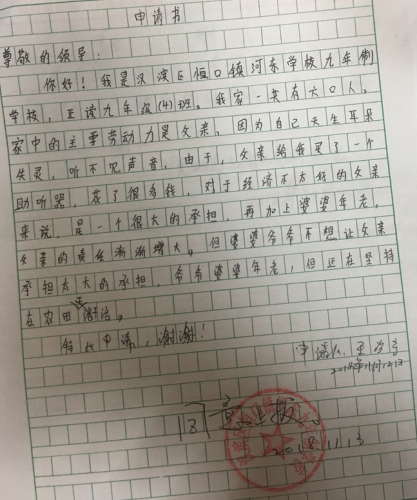 申请书
尊敬的领导:
你好!我是汉滨区恒口镇河东学校九年制
学校,正读九年级(4)班。我家一共有六口人,
家中的主要劳动力是父亲,因为自己天生耳朵
失灵,听不见声音,由于,父亲给我买了一个
助听器,花了很多钱,对于经济不太好的父亲
来说,是一个很大的承担,再加上婆婆年老,
父亲的责任渐渐增大。但婆婆爷爷不想让父亲
承担太大的承担,爷爷婆婆年老,但还在坚持
在农田 活。
特此申请,谢谢!
申请人:
2018年11月12日
同意上报。
2018.11.13